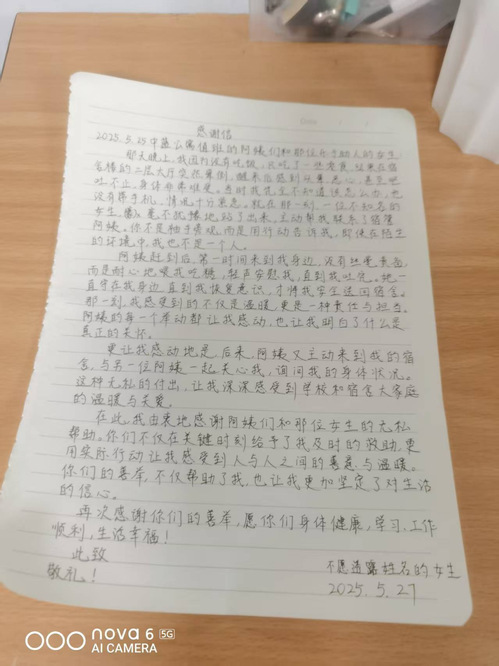 感谢信
Date
2025.5.25中蓝公寓值班的阿姨们和那位乐于助人的女生
那天晚上,我因为没有吃饭,只吃了一些零食,结果在宿
舍楼的二层大厅突然晕倒,醒来后感到反胃恶心,甚至呕
吐不止,身体非常难受。当时我完全不知道该怎么办,也
没有带手机,情况十分紧急。就在那一刻,一位不知名的
女生毫不犹豫地站了出来,主动帮我联系了宿管
阿姨。你不是袖手旁观,而是用行动告诉我,即使在陌生
的环境中,我也不是一个人。
阿姨赶到后,第一时间来到我身边,没有丝毫責备,
而是耐心地喂我吃糖,轻声安慰我,直到我吐完。她一
直守在我身边,直到我恢复意识,才将我安全送回宿舍。
那一刻,我感受到的不仅是温暖,更是一种责任与担当。
阿姨的每一个举动都让我感动,也让我明白了什么是
真正的关怀。
更让我感动地是,后来,阿姨又主动来到我的宿
舍,与另一位阿姨一起关心我,询问我的身体状况。
这种无私的付出,让我深深感受到学校和宿舍大家庭
的温暖与关爱。
在此,我由衷地感谢阿姨们和那位女生的无私
帮助。你们不仅在关键时刻给予了我及时的救助,更
用实际行动让我感受到人与人之间的善意与温暖。
你们的善举,不仅帮助了我,也让我更加坚定了对生活
的信心。
再次感谢你们的善举,愿你们身体健康,学习,工作
顺利,生活幸福!
此致
敬礼!
不愿透露姓名的女生
2025.5.27
nova 6 5G
AI CAMERA